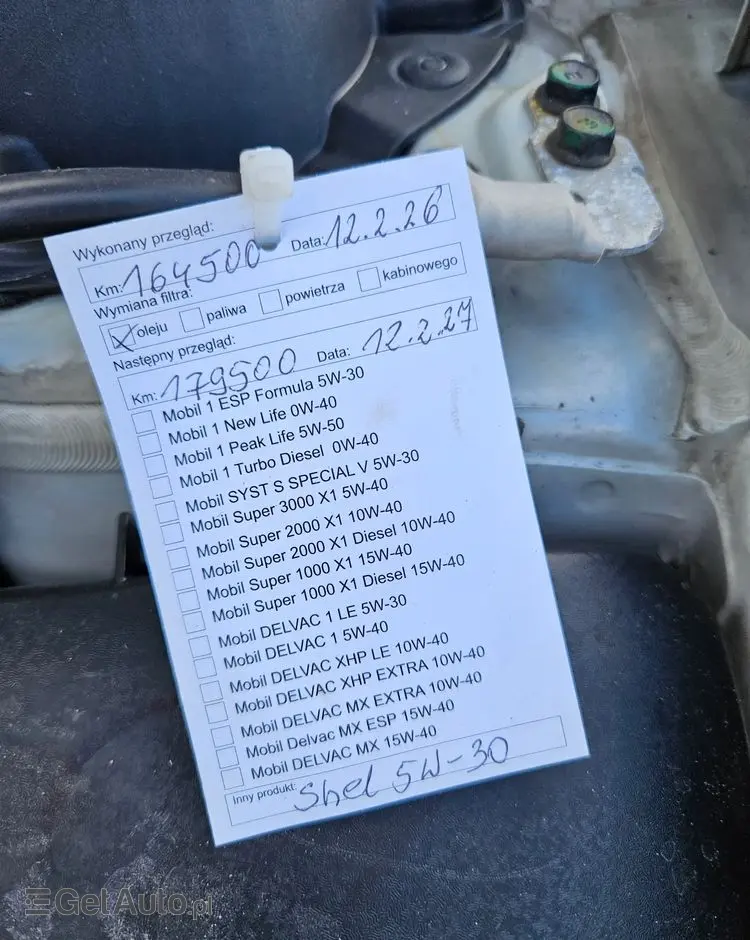 Wykonany przegląd:
Km: 164500 Data: 12.2.26
Wymiana filtra:
oleju paliwa powietrza kabinowego
Następny przegląd:
Km: 179500 Data: 12.2.27
Mobil 1 ESP Formula 5W-30
Mobil 1 New Life 0W-40
Mobil 1 Peak Life 5W-50
Mobil 1 Turbo Diesel 0W-40
Mobil SYST S SPECIAL V 5W-30
Mobil Super 3000 X1 5W-40
Mobil Super 2000 X1 10W-40
Mobil Super 2000 X1 Diesel 10W-40
Mobil Super 1000 X1 15W-40
Mobil Super 1000 X1 Diesel 15W-40
Mobil DELVAC 1 LE 5W-30
Mobil DELVAC 1 5W-40
Mobil DELVAC XHP LE 10W-40
Mobil DELVAC XHP EXTRA 10W-40
Mobil DELVAC MX EXTRA 10W-40
Mobil Delvac MX ESP 15W-40
Mobil DELVAC MX 15W-40
Inny produkt: Shel 5W-30
GetAuto.pl